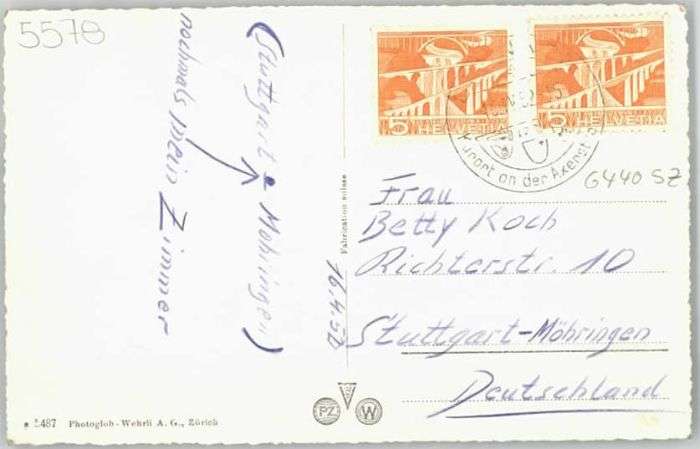 5578
(Stuttgart - Möhringen)
nochmals mein Zimmer
16.4.5D
Fabrication suisse
5 HELVETIA
5 HELVETIA
Kurort an der Axenstr
6440 SZ
Frau
Betty Koch
Richterstr. 10
Stuttgart-Möhringen
Deutschland
PZ
W
487 Photoglob-Wehrli A. G., Zürich